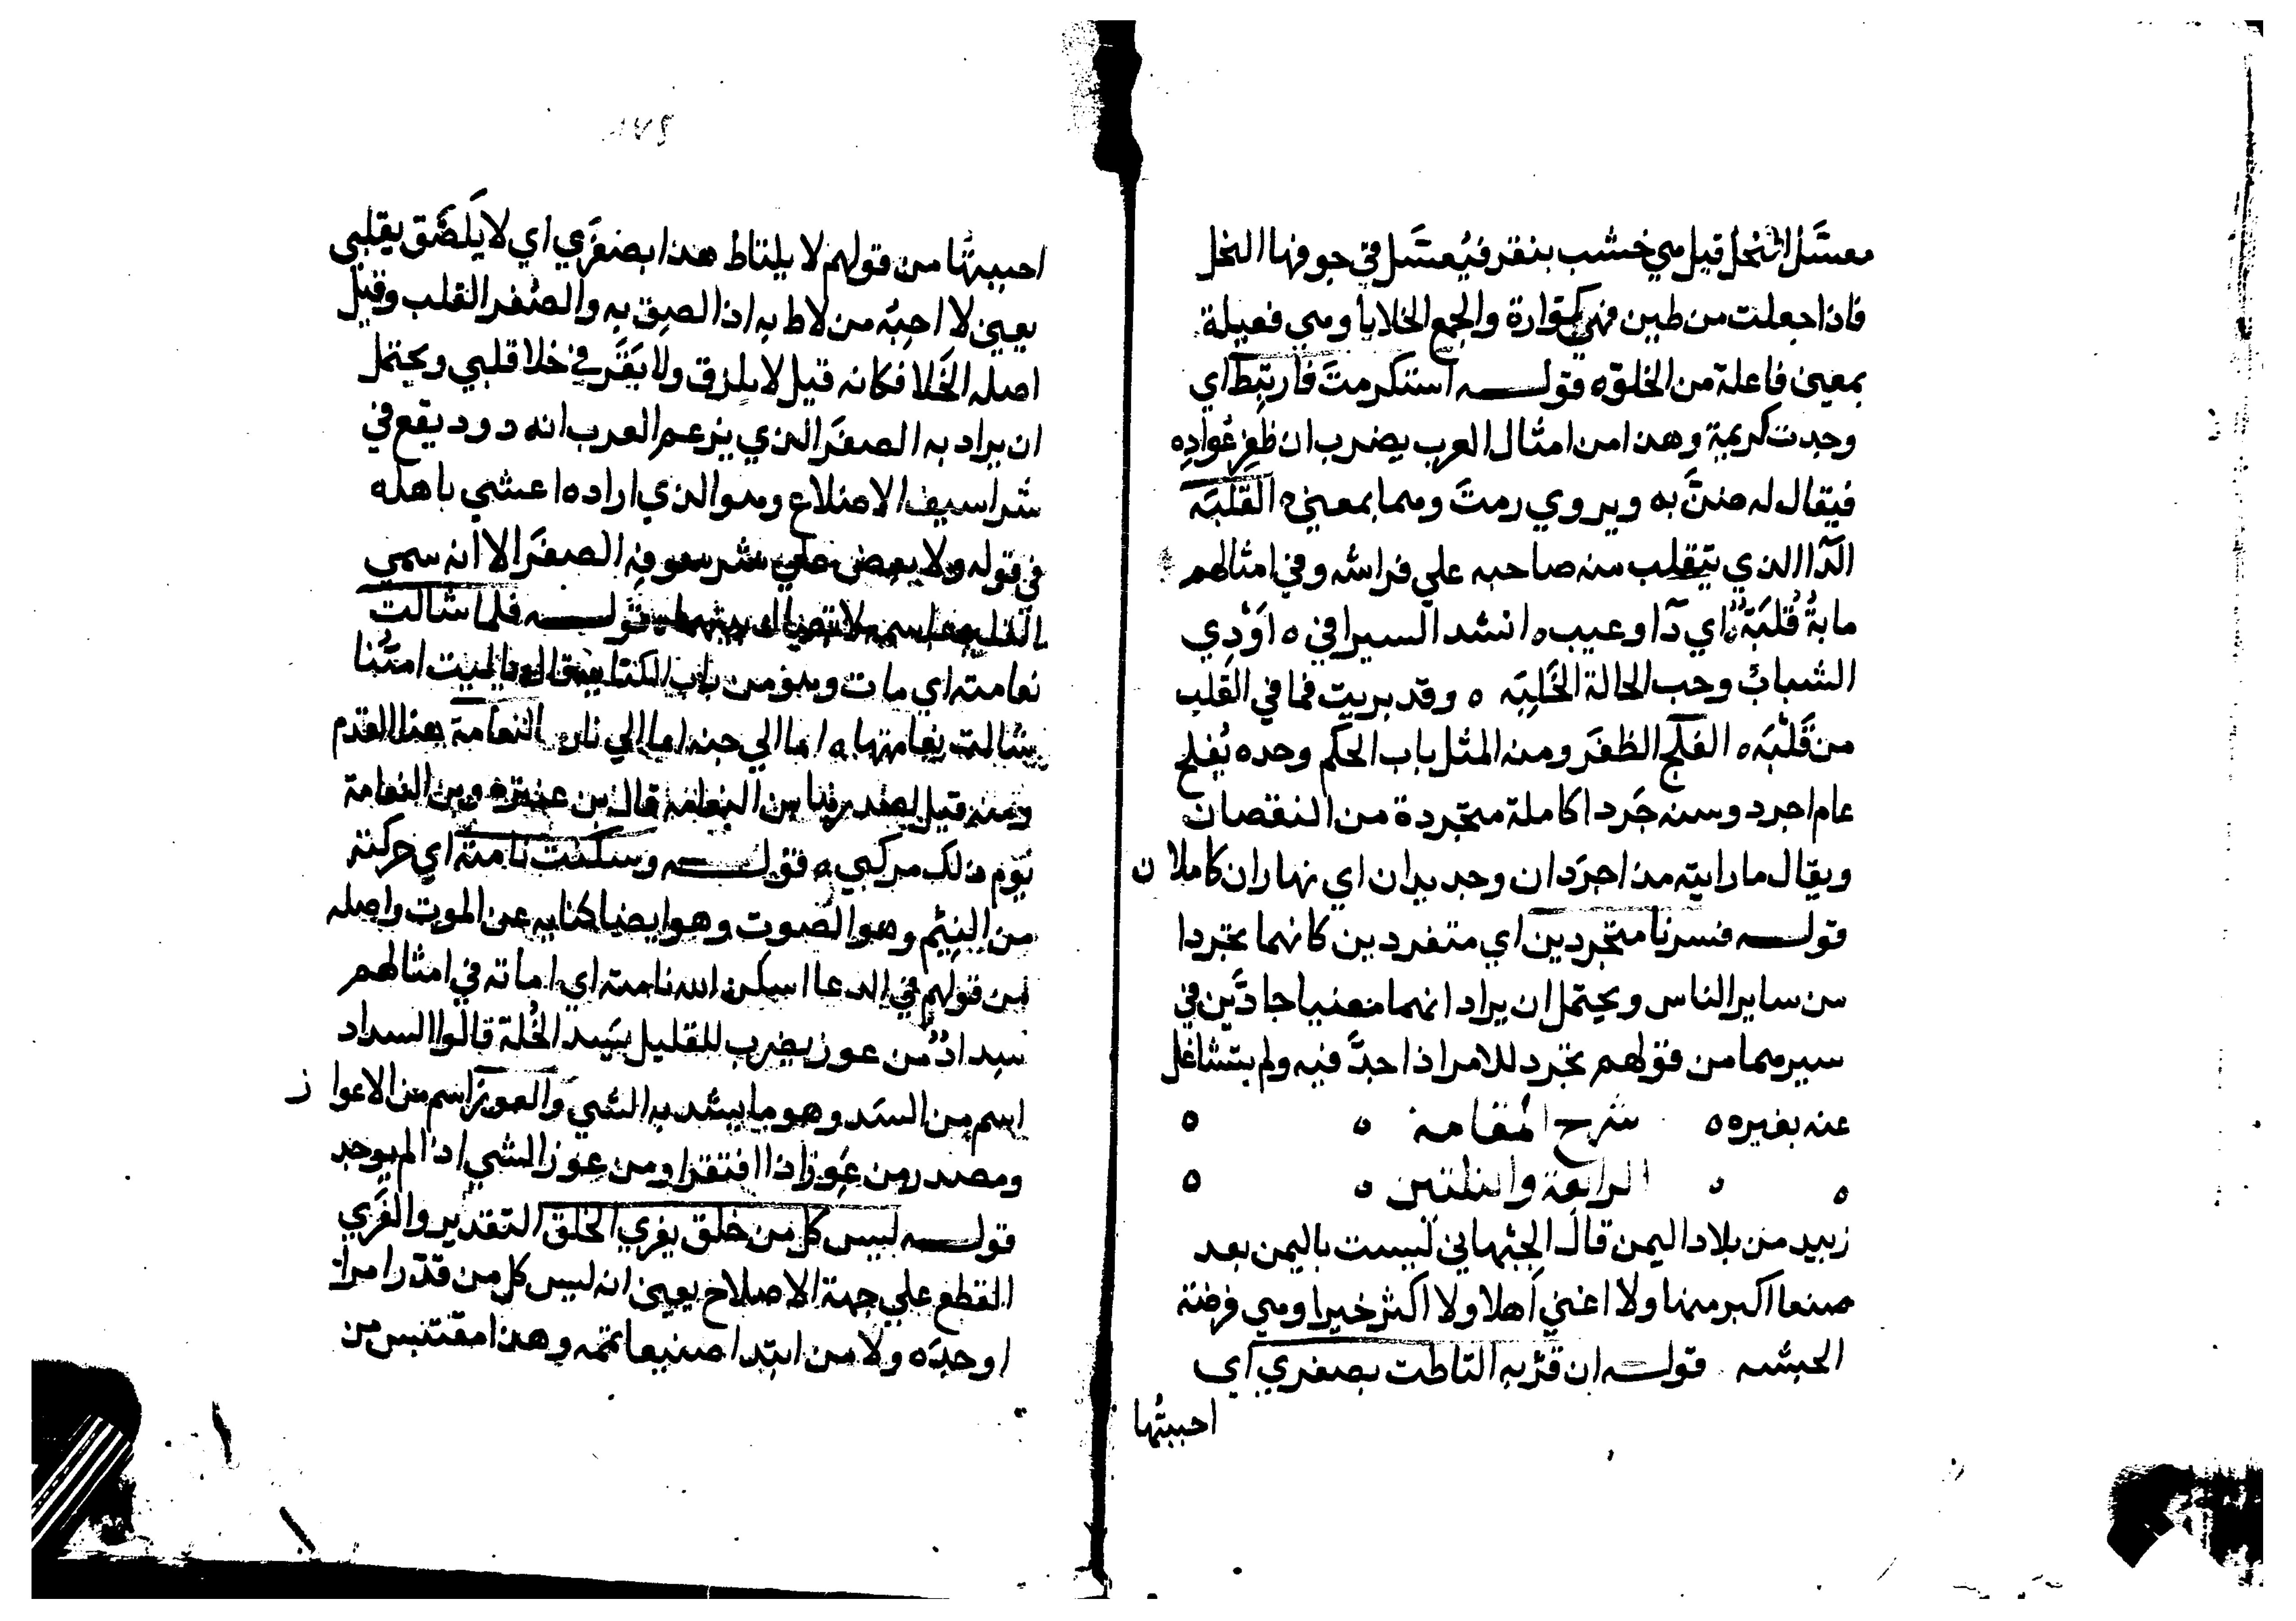 معسَّل النحل قيل هي خشب ينقر فيُعسَّل في جوفها النحل
فاذا جعلت من طين فهي كوارة والجمع الخلايا وهي فعيلة
بمعني فاعلة من الخلوه قولــه استكرمتَ فارتبِط اي
وجدت كريمة وهذا من امثال العرب يضرب ان ظفر
فيقال له ضنَّ به ويروي رمتَ وهما بمعني ه القَلَبَه
الدّاالذي يتقلب منه صاحبه علي فراشه وفي امثالهم
مابهُ قُلَبَةٌ اي دآ وعيب ه انشد السيرافي ه اَوْدِي
الشبابُ وحب الخالة الخَلِبَه ه وقد بريت فما في القلب
من قَلَبَه ه الفلَج الظفَر ومنه المثل باب الحكم وحده يُفلج
عام اجرد وسنه جَردا كاملة متجردة من النقصان
ويقال مارايته مذ اجرَدان وجديدان اي نهاران كاملان
قولــه فسرنا متجردين اي متفردين كانهما تجردا
من ساير الناس ويحتمل ان يراد انهما مضيا جادَّين في
سيرهما من قولهم تجرد للامر اذا جدَّ فيه ولم يتشاغل
عنه بغيره ه شرح المقامة ه ه
ه ه الرابعة والثلثين ه ه
زبيد من بلاد اليمن قال الجيهاني ليست باليمن بعد
صنعا اكبر منها ولا اغني اهلا ولا اكثر خيرا وهي فرضة
الحبشه قولــه ان قرّبه التاطت بصفري اي
احببتُها
١٧٤
احببتُها من قولهم لا يلتاط هذا بصفَري اي لا يَلصَق بقلبي
يعني لا احِبّه من لاط به اذا لصِق به والصَفر القلب وقيل
اصله الخَلا فكانه قيل لا يلزق ولا يَقَر في خلا قلبي ويحتمل
ان يراد به الصفَر الذي يزعم العرب انه دود يقع في
شراسيف الاضلاع وهو الذي اراده اعشي باهله
في قوله ولا يعض علي شرسوفه الصفَر الا انه سمي
القلب باسمه لاتصال بينهما ه قولــه فلما شالت
نعامته اي مات وهو من باب الكنايه يقال ياليت امَّنا
شالت نعامتها ه اما الي جنه اما الي نار النعامة هنا القدم
ومنه قيل لصدرها ابن النعامه قال عنترة وابن النعامة
يوم ذلك مركبي ه قولــه وسكنت نامته اي حركته
من النئيم وهو الصوت وهو ايضا كنايه عن الموت واصله
من قولهم في الدعا اسكن الله نامته اي اماته في امثالهم
سِدادٌ من عوز يضرب للقليل يَسُد الخُلة قالوا السداد
اسم من السَد وهو ما يسُد به الشي والعوَز اسم من الاعواز
ومصدر من عَوِز اذا افتقر ومن عوز الشي اذا لم يوجد
قولــه ليس كل من خلق يفري الخلق التقدير والفَري
القطع علي جهة الاصلاح يعني انه ليس كل من قدّر امرا
اوجدَه ولا من ابتدا صنيعا تمه وهذا مقتبس من